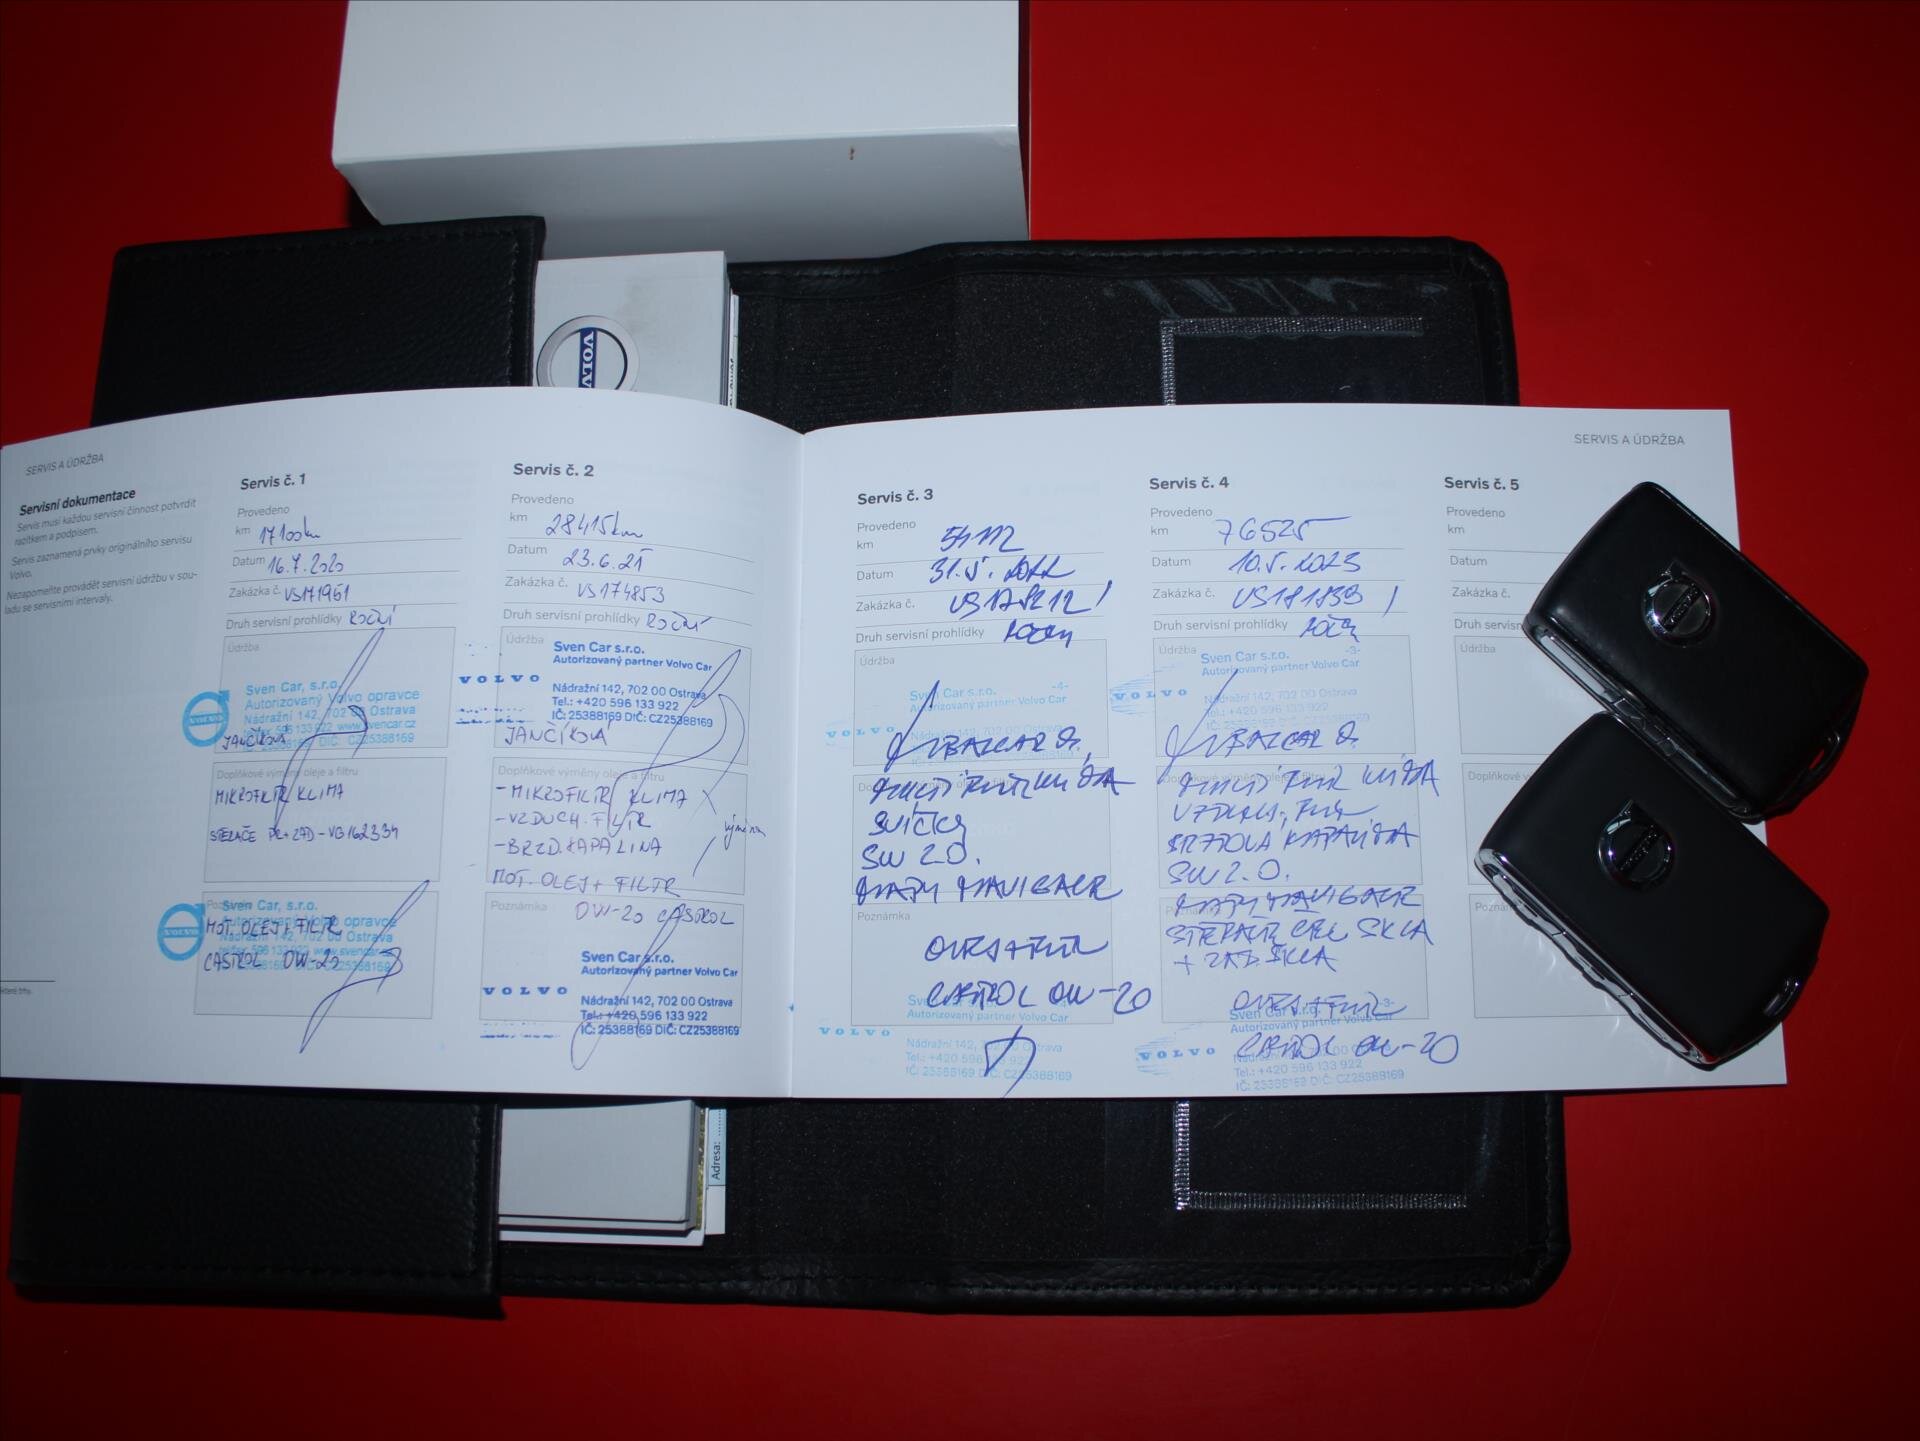 VOLVO
SERVIS A ÚDRŽBA
Servisní dokumentace
Servis musí každou servisní činnost potvrdit
razítkem a podpisem.
Servis zaznamená prvky originálního servisu
Volvo.
Nezapomeňte provádět servisní údržbu v sou-
ladu se servisními intervaly.
Servis č. 1
Provedeno
km 17100km
Datum 16.7.2020
Zakázka č. VS171961
Druh servisní prohlídky ROČNÍ
Údržba
Sven Car, s.r.o.
Autorizovaný Volvo opravce
Nádražní 142, 702 00 Ostrava
596 133 922 www.svencar.cz
DIČ: CZ25388169
JANČÍKOVÁ
Doplňkové výměny oleje a filtru
MIKROFILTR KLIMA
STĚRAČE PŘ+ZAD-VG162334
Sven Car, s.r.o.
Autorizovaný Volvo opravce
MOT. OLEJ+FILTR
Nádražní 142, 702 00 Ostrava
596 133 922 www.svencar.cz
CASTROL OW-20
Servis č. 2
Provedeno
km 28415km
Datum 23.6.21
Zakázka č. VS174853
Druh servisní prohlídky ROČNÍ
Údržba
Sven Car s.r.o.
Autorizovaný partner Volvo Car
VOLVO
Nádražní 142, 702 00 Ostrava
Tel.: +420 596 133 922
IČ: 25388169 DIČ: CZ25388169
JANČÍKOVÁ
Doplňkové výměny oleje a filtru
-MIKROFILTR KLIMA
-VZDUCH. FILTR
-BRZD. KAPALINA
MOT. OLEJ+ FILTR
Poznámka OW-20 CASTROL
Sven Car s.r.o.
Autorizovaný partner Volvo Car
VOLVO
Nádražní 142, 702 00 Ostrava
Tel.: +420 596 133 922
IČ: 25388169 DIČ: CZ25388169
SERVIS A ÚDRŽBA
Servis č. 3
Provedeno
km
Datum 31.5.2022
Zakázka č.
Druh servisní prohlídky
Údržba
Sven Car s.r.o. -4-
Autorizovaný partner Volvo Car
VOLVO
SVÍČKY
SW 2.0.
MAPY NAVIGACE
Poznámka
OLEJ+FILTR
CASTROL OW-20
Autorizovaný partner Volvo Car
VOLVO
Nádražní 142, 702 00 Ostrava
Tel.: +420 596 133 922
IČ: 25388169 DIČ: CZ25388169
Servis č. 4
Provedeno
km 76525
Datum 10.5.2023
Zakázka č. VS181839
Druh servisní prohlídky
Údržba
-3-
Sven Car s.r.o.
Autorizovaný partner Volvo Car
VOLVO
Nádražní 142, 702 00 Ostrava
Tel.: +420 596 133 922
BRZDOVÁ KAPALINA
SW 2.0.
MAPY NAVIGACE
+ ZAD. SKLA
OLEJ+FILTR
-3-
Sven Car s.r.o.
Autorizovaný partner Volvo Car
CASTROL OW-20
VOLVO
Tel.: +420 596 133 922
IČ: 25388169 DIČ: CZ25388169
Servis č. 5
Provedeno
km
Datum
Zakázka č.
Druh servisní
Údržba
Adresa: